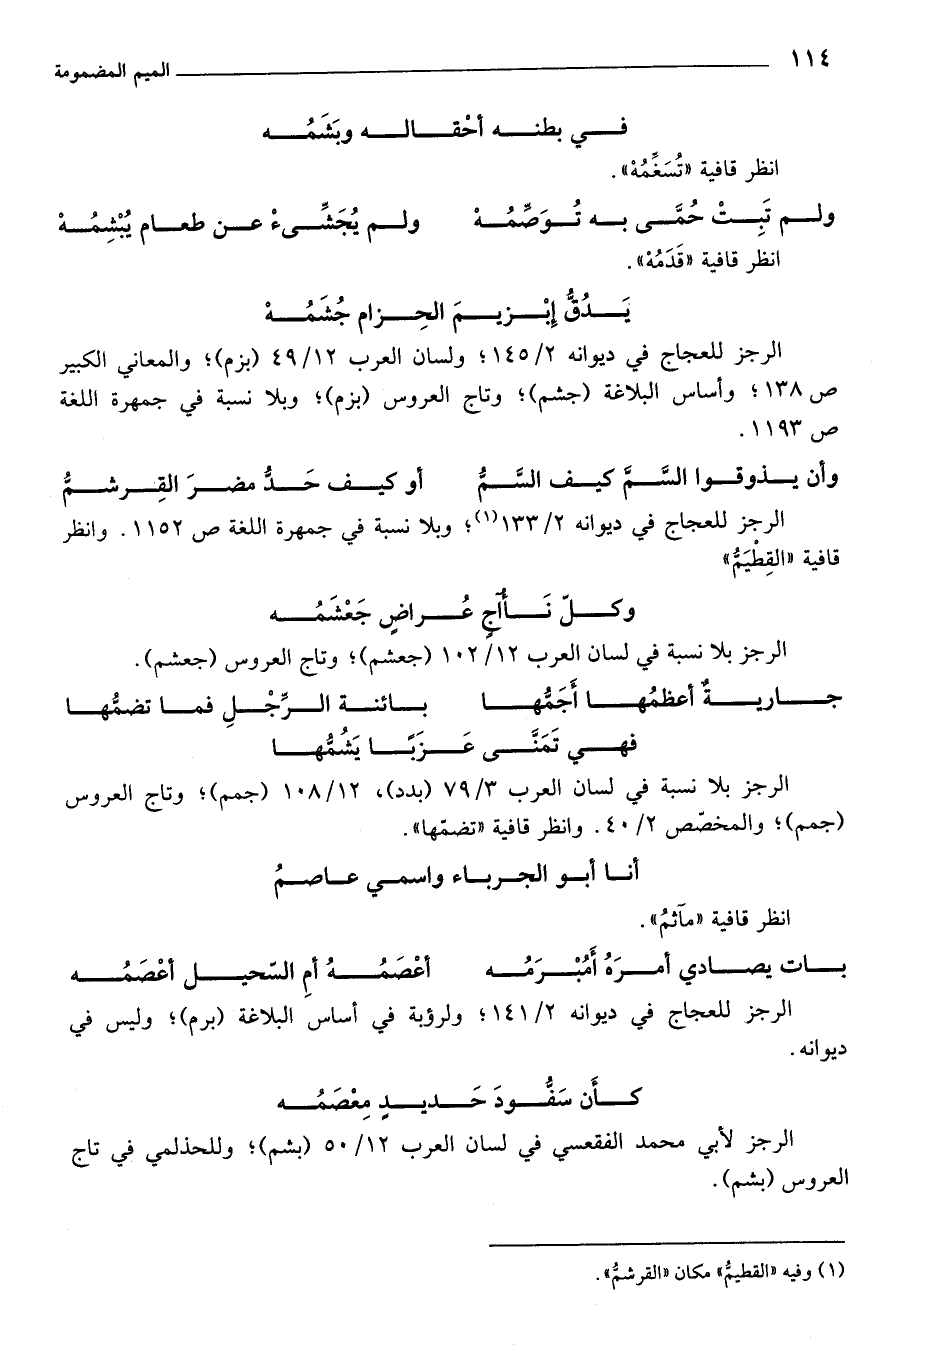 ١١٤ الميم المضمومة
فـي بطنـه أحْقـالـه وبَشَمُـه
انظر قافية «تُسَغِّمُهْ».
ولـم تَبِـتْ حُمَّـى بـه تُـوَصِّمُـهْ ولـم يُجَشِّـىءْ عـن طعـام يُبْشِمُـهْ
انظر قافية «قَدَمُهْ».
يَـدُقُّ إبْـزيـمَ الحِـزام جُشَمُـهْ
الرجز للعجاج في ديوانه ١٤٥/٢؛ ولسان العرب ٤٩/١٢ (بزم)؛ والمعاني الكبير
ص ١٣٨؛ وأساس البلاغة (جشم)؛ وتاج العروس (بزم)؛ وبلا نسبة في جمهرة اللغة
ص ١١٩٣.
وأن يـذوقـوا السَّـمَّ كيـف السَّـمُّ أو كيـف حَـدُّ مضـرَ القِـرشـمُّ
الرجز للعجاج في ديوانه ١٣٣/٢(١)؛ وبلا نسبة في جمهرة اللغة ص ١١٥٢. وانظر
قافية «القِطْيَمُّ»
وكـلّ نَـأّآجٍ عُـراضٍ جَعْشَمُـه
الرجز بلا نسبة في لسان العرب ١٠٢/١٢ (جعشم)؛ وتاج العروس (جعشم).
جـاريـةٌ أعظمُهـا أجَمُّهـا بـائنـة الـرِّجْـلِ فمـا تضمُّهـا
فهـي تَمَنَّـى عَـزَبًـا يَشُمُّهـا
الرجز بلا نسبة في لسان العرب ٧٩/٣ (بدد)، ١٠٨/١٢ (جمم)؛ وتاج العروس
(جمم)؛ والمخصّص ٤٠/٢. وانظر قافية «تضمّها».
أنـا أبـو الجـربـاء واسمـي عـاصـمُ
انظر قافية «مآثمُ».
بـات يصـادي أمـرَهُ أَمُبْـرَمُـه أعْصَمُـهُ أمِ السّحيـل أعْصَمُـه
الرجز للعجاج في ديوانه ١٤١/٢؛ ولرؤبة في أساس البلاغة (برم)؛ وليس في
ديوانه.
كـأن سَفُّـودَ حَـديـدٍ مِعْصَمُـه
الرجز لأبي محمد الفقعسي في لسان العرب ٥٠/١٢ (بشم)؛ وللحذلمي في تاج
العروس (بشم).
(١) وفيه «القطيمُّ» مكان «القرشمُّ».